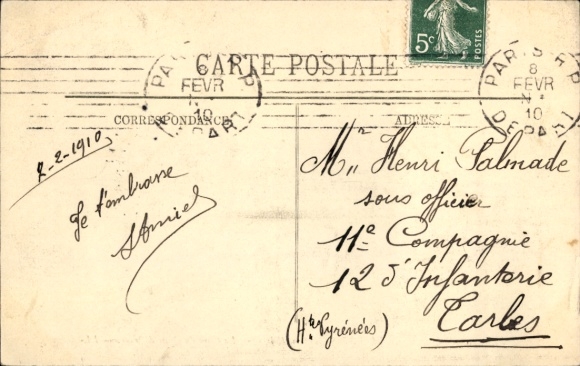 5c
POSTES
CARTE POSTALE
PARIS R.P
8
FEVR
10
DEPART
PARIS R.P
8
FEVR
10
DEPART
CORRESPONDANCE
ADRESSE
7-2-1910
Je t'embrasse
Mr Henri Palmade
sous officier
11e Compagnie
12 d'Infanterie
Tarbes
(Htes Pyrénées)